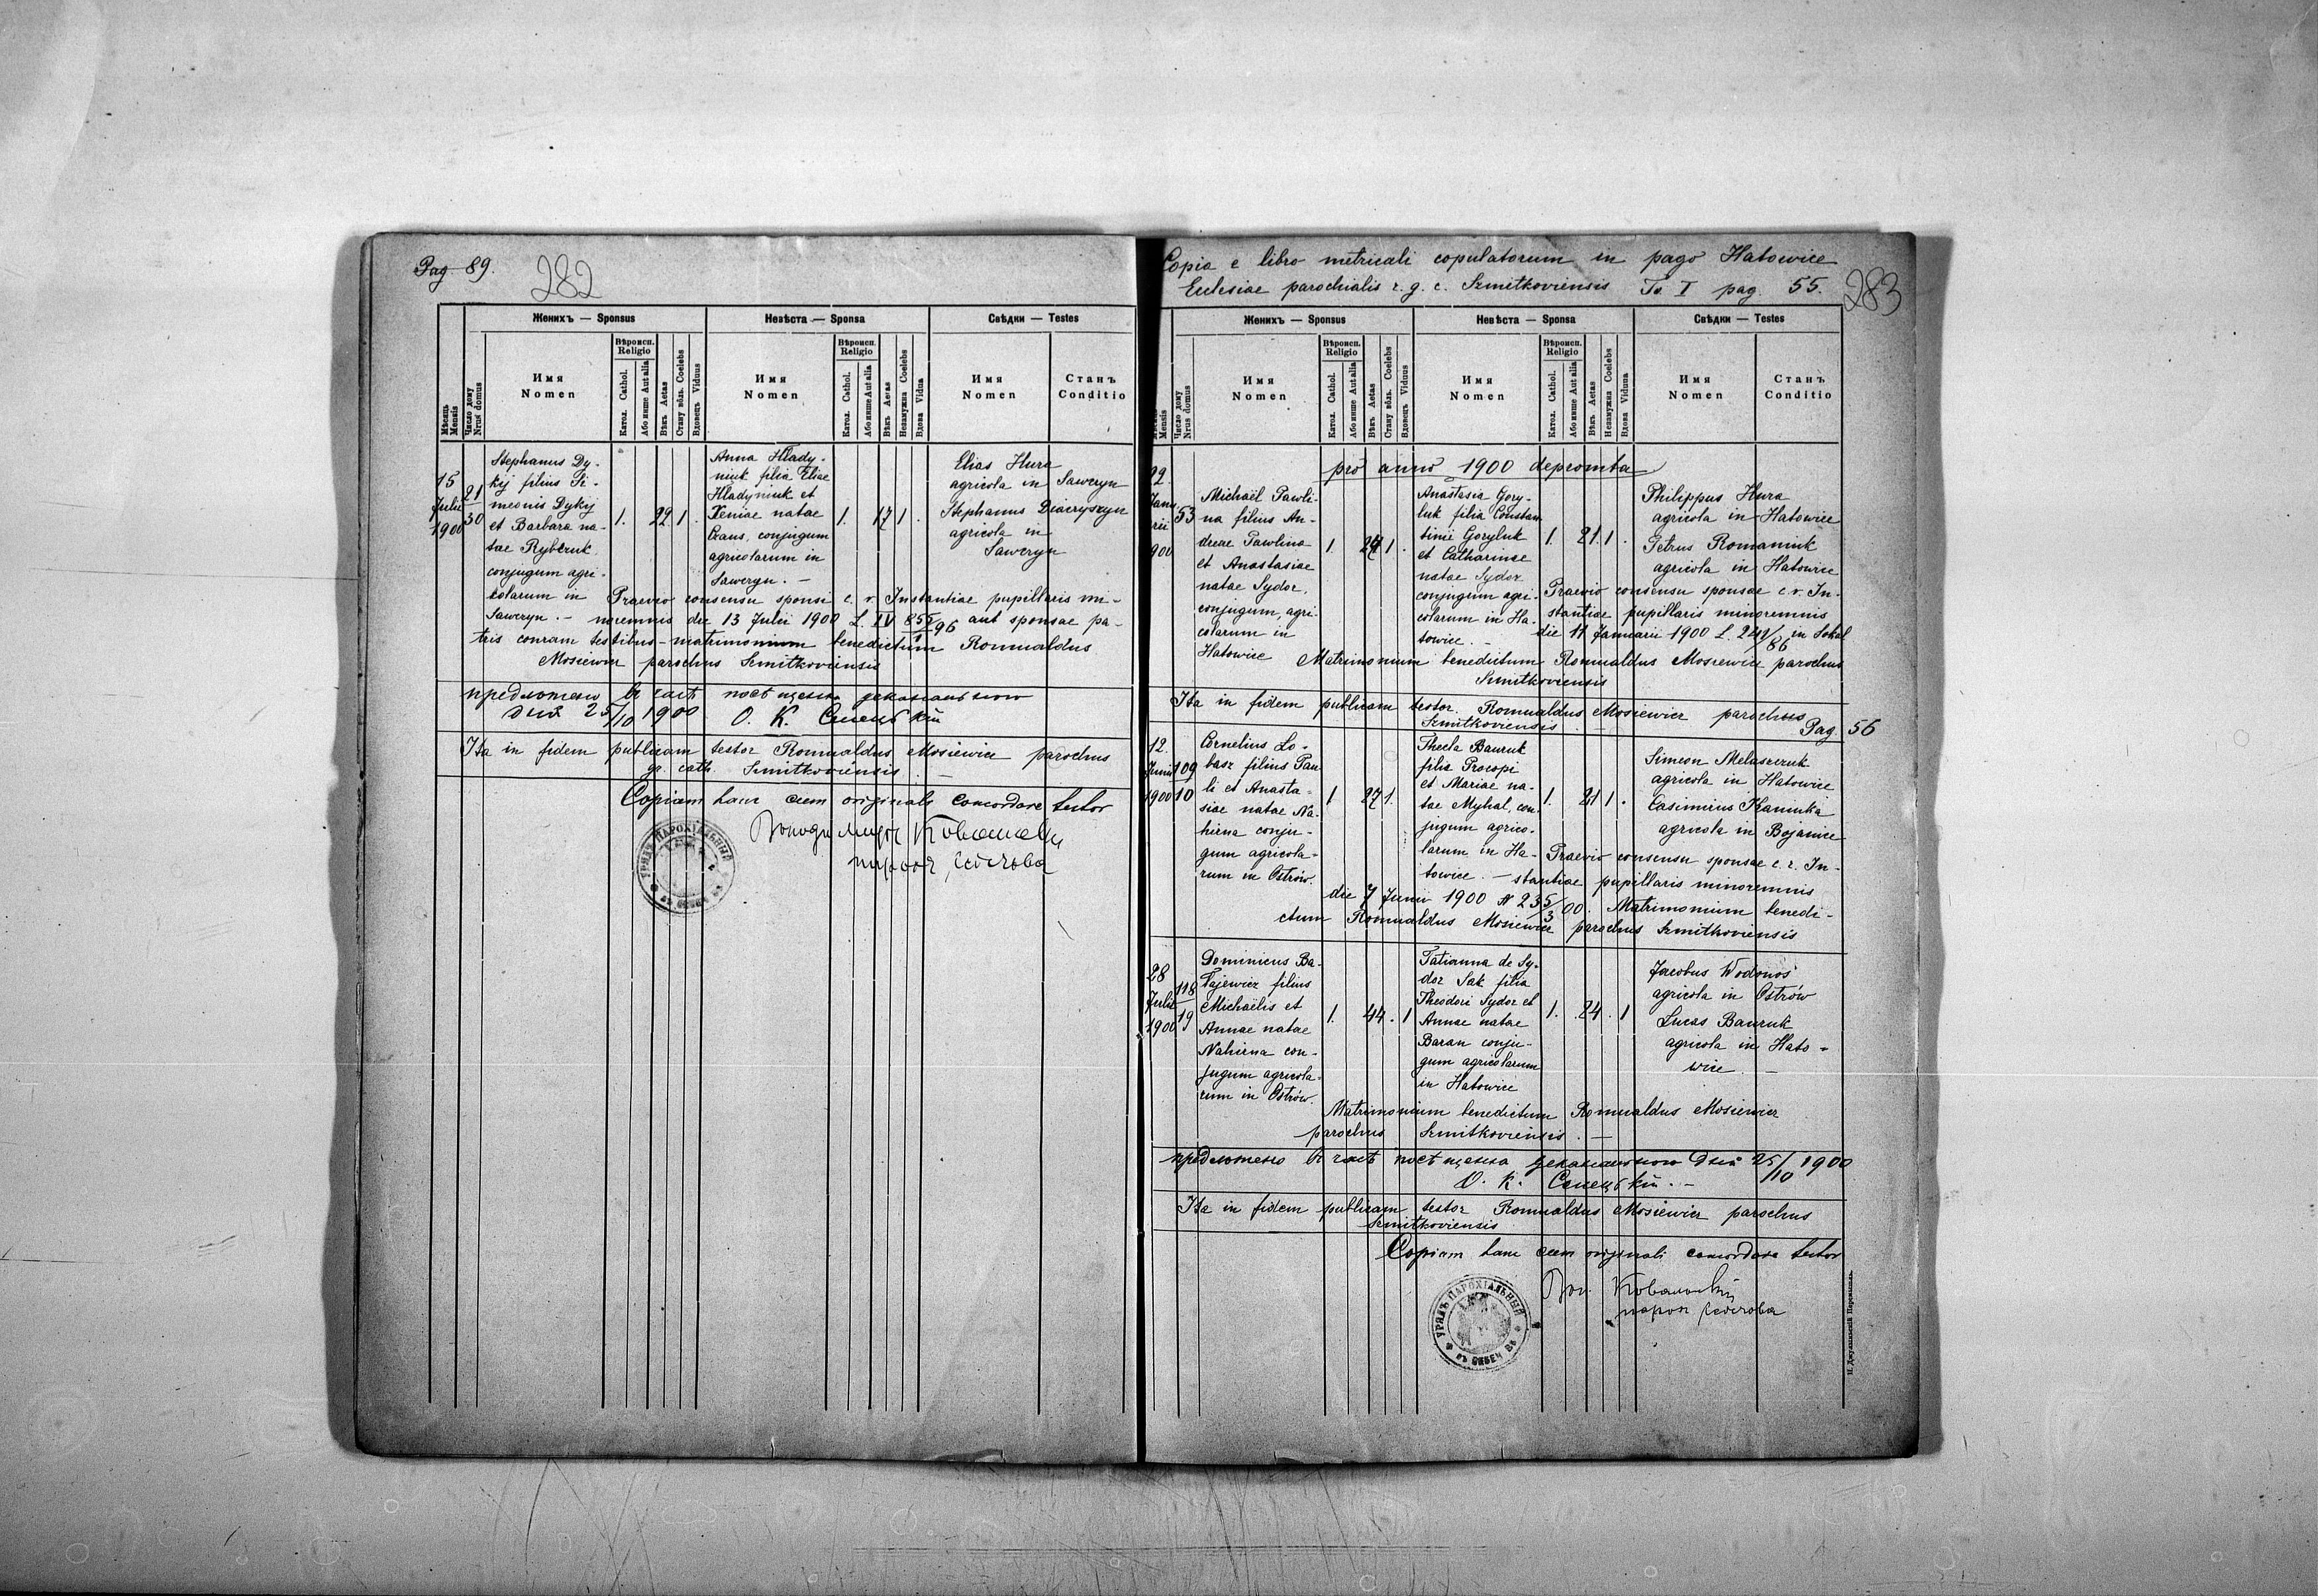 Pag. 89.
282
Женихъ — Sponsus
Невѣста — Sponsa
Свѣдки — Testes
Мѣсяць Mensis
Число дому Nrus domus
Имя Nomen
Вѣроисп. Religio
Катол. Cathol.
Або инше Aut alia
Вѣкъ Aetas
Стану вôль. Coelebs
Вдовець Viduus
Имя Nomen
Вѣроисп. Religio
Катол. Cathol.
Або инше Aut alia
Вѣкъ Aetas
Незамужна Coelebs
Вдова Vidua
Имя Nomen
Станъ Conditio
15 Julii 1900
21
30
Stephanus Dy-
kij filius Si-
meonis Dykij
et Barbara na-
tae Rybczuk
conjugum agri-
colarum in
Sawczyn. —
1. 22 1.
Anna Hlady-
niuk filia Eliae
Hladyniuk et
Xeniae natae
Craus, conjugum
agricolarum in
Sawczyn. —
1. 17 1.
Elias Hura
agricola in Sawczyn
Stephanus Diaczyszyn
agricola in
Sawczyn
Praevio consensu sponsi c. r. Instantiae pupillaris mi-
noremnis die 13 Julii 1900 L. IV 855/96 aut sponsae pa-
tris conram testibus - matrimonium benedictum Romualdus
Mosiewicz parochus Szmitkoviensis
предложено
дня 25/10 1900 О. К. Сенецькій
Ita in fidem publicam testor Romualdus Mosiewicz parochus
gr. cath. Szmitkoviensis. —
Copiam hanc cum originali concordare testor
УРЯДЪ ПАРОХІАЛЬНЫЙ
Copia e libro metricali copulatorum in pago Hatowice
Eclesiae parochialis r. g. c. Szmitkoviensis To. I pag. 55.
283
Женихъ — Sponsus
Невѣста — Sponsa
Свѣдки — Testes
Mensis
Число дому Nrus domus
Имя Nomen
Вѣроисп. Religio
Катол. Cathol.
Або инше Aut alia
Вѣкъ Aetas
Стану вôль. Coelebs
Вдовець Viduus
Имя Nomen
Вѣроисп. Religio
Катол. Cathol.
Або инше Aut alia
Вѣкъ Aetas
Незамужна Coelebs
Вдова Vidua
Имя Nomen
Станъ Conditio
pro anno 1900 depromta
22.
Janu
rii
900
53
Michaël Pawli-
na filius An-
dreae Pawlina
et Anastasiae
natae Sydor,
conjugum, agri-
colarum in
Hatowice
1. 24 1.
Anastasia Gory-
luk filia Constan
tinii Goryluk
et Catharinae
natae Sydor
conjugum agri-
colarum in Ha-
towice. —
1. 21. 1.
Philippus Hura
agricola in Hatowice
Petrus Romaniuk
agricola in Hatowice
Praevio consensu sponsae c. r. In-
stantiae pupillaris minoremnis
die 11 Januarii 1900 in Sokal
Matrimonium benedictum Romualdus Mosiewicz parochus
Szmitkoviensis
Ita in fidem publicam testor. Romualdus Mosiewicz parochus
Szmitkoviensis.
Pag. 56
12.
Junii
1900
109
10
Cornelius Lo-
basz filius Pau
li et Anasta-
siae natae Na-
hirna conju-
gum agricola-
rum in Ostrów.
1 27 1.
Thecla Bauruk
filia Procopi
et Mariae na-
tae Myhal, con-
jugum agrico-
larum in Ha-
towice. —
1. 21 1.
Simeon Melaszczuk
agricola in Hatowice
Casimirus Kaniuka
agricola in Bojanice
Praevio consensu sponsae c. r. In-
stantiae pupillaris minoremnis
die 7 Junii 1900 N 235/3/00. Matrimonium benedi-
ctum Romualdus Mosiewicz parochus Szmitkoviensis
28
Julii
1900
118
19
Dominicus Ba-
łajewicz filius
Michaëlis et
Annae natae
Nahirna con-
jugum agricola-
rum in Ostrów.
1. 44. 1
Tatianna de Sy-
dor Sak filia
Theodori Sydor et
Annae natae
Baran conju-
gum agricolarum
in Hatowice
1. 24. 1
Jacobus Wodonos
agricola in Ostrów
Lucas Bauruk
agricola in Hato-
wice. —
Matrimonium benedictum Romualdus Mosiewicz
parochus Szmitkoviensis. —
предложено дня 25/10 1900
О. К. Сенецькій. —
Ita in fidem publicam testor Romualdus Mosiewicz parochus
Szmitkoviensis
Copiam hanc cum originali concordare testor
УРЯДЪ ПАРОХІАЛЬНЫЙ